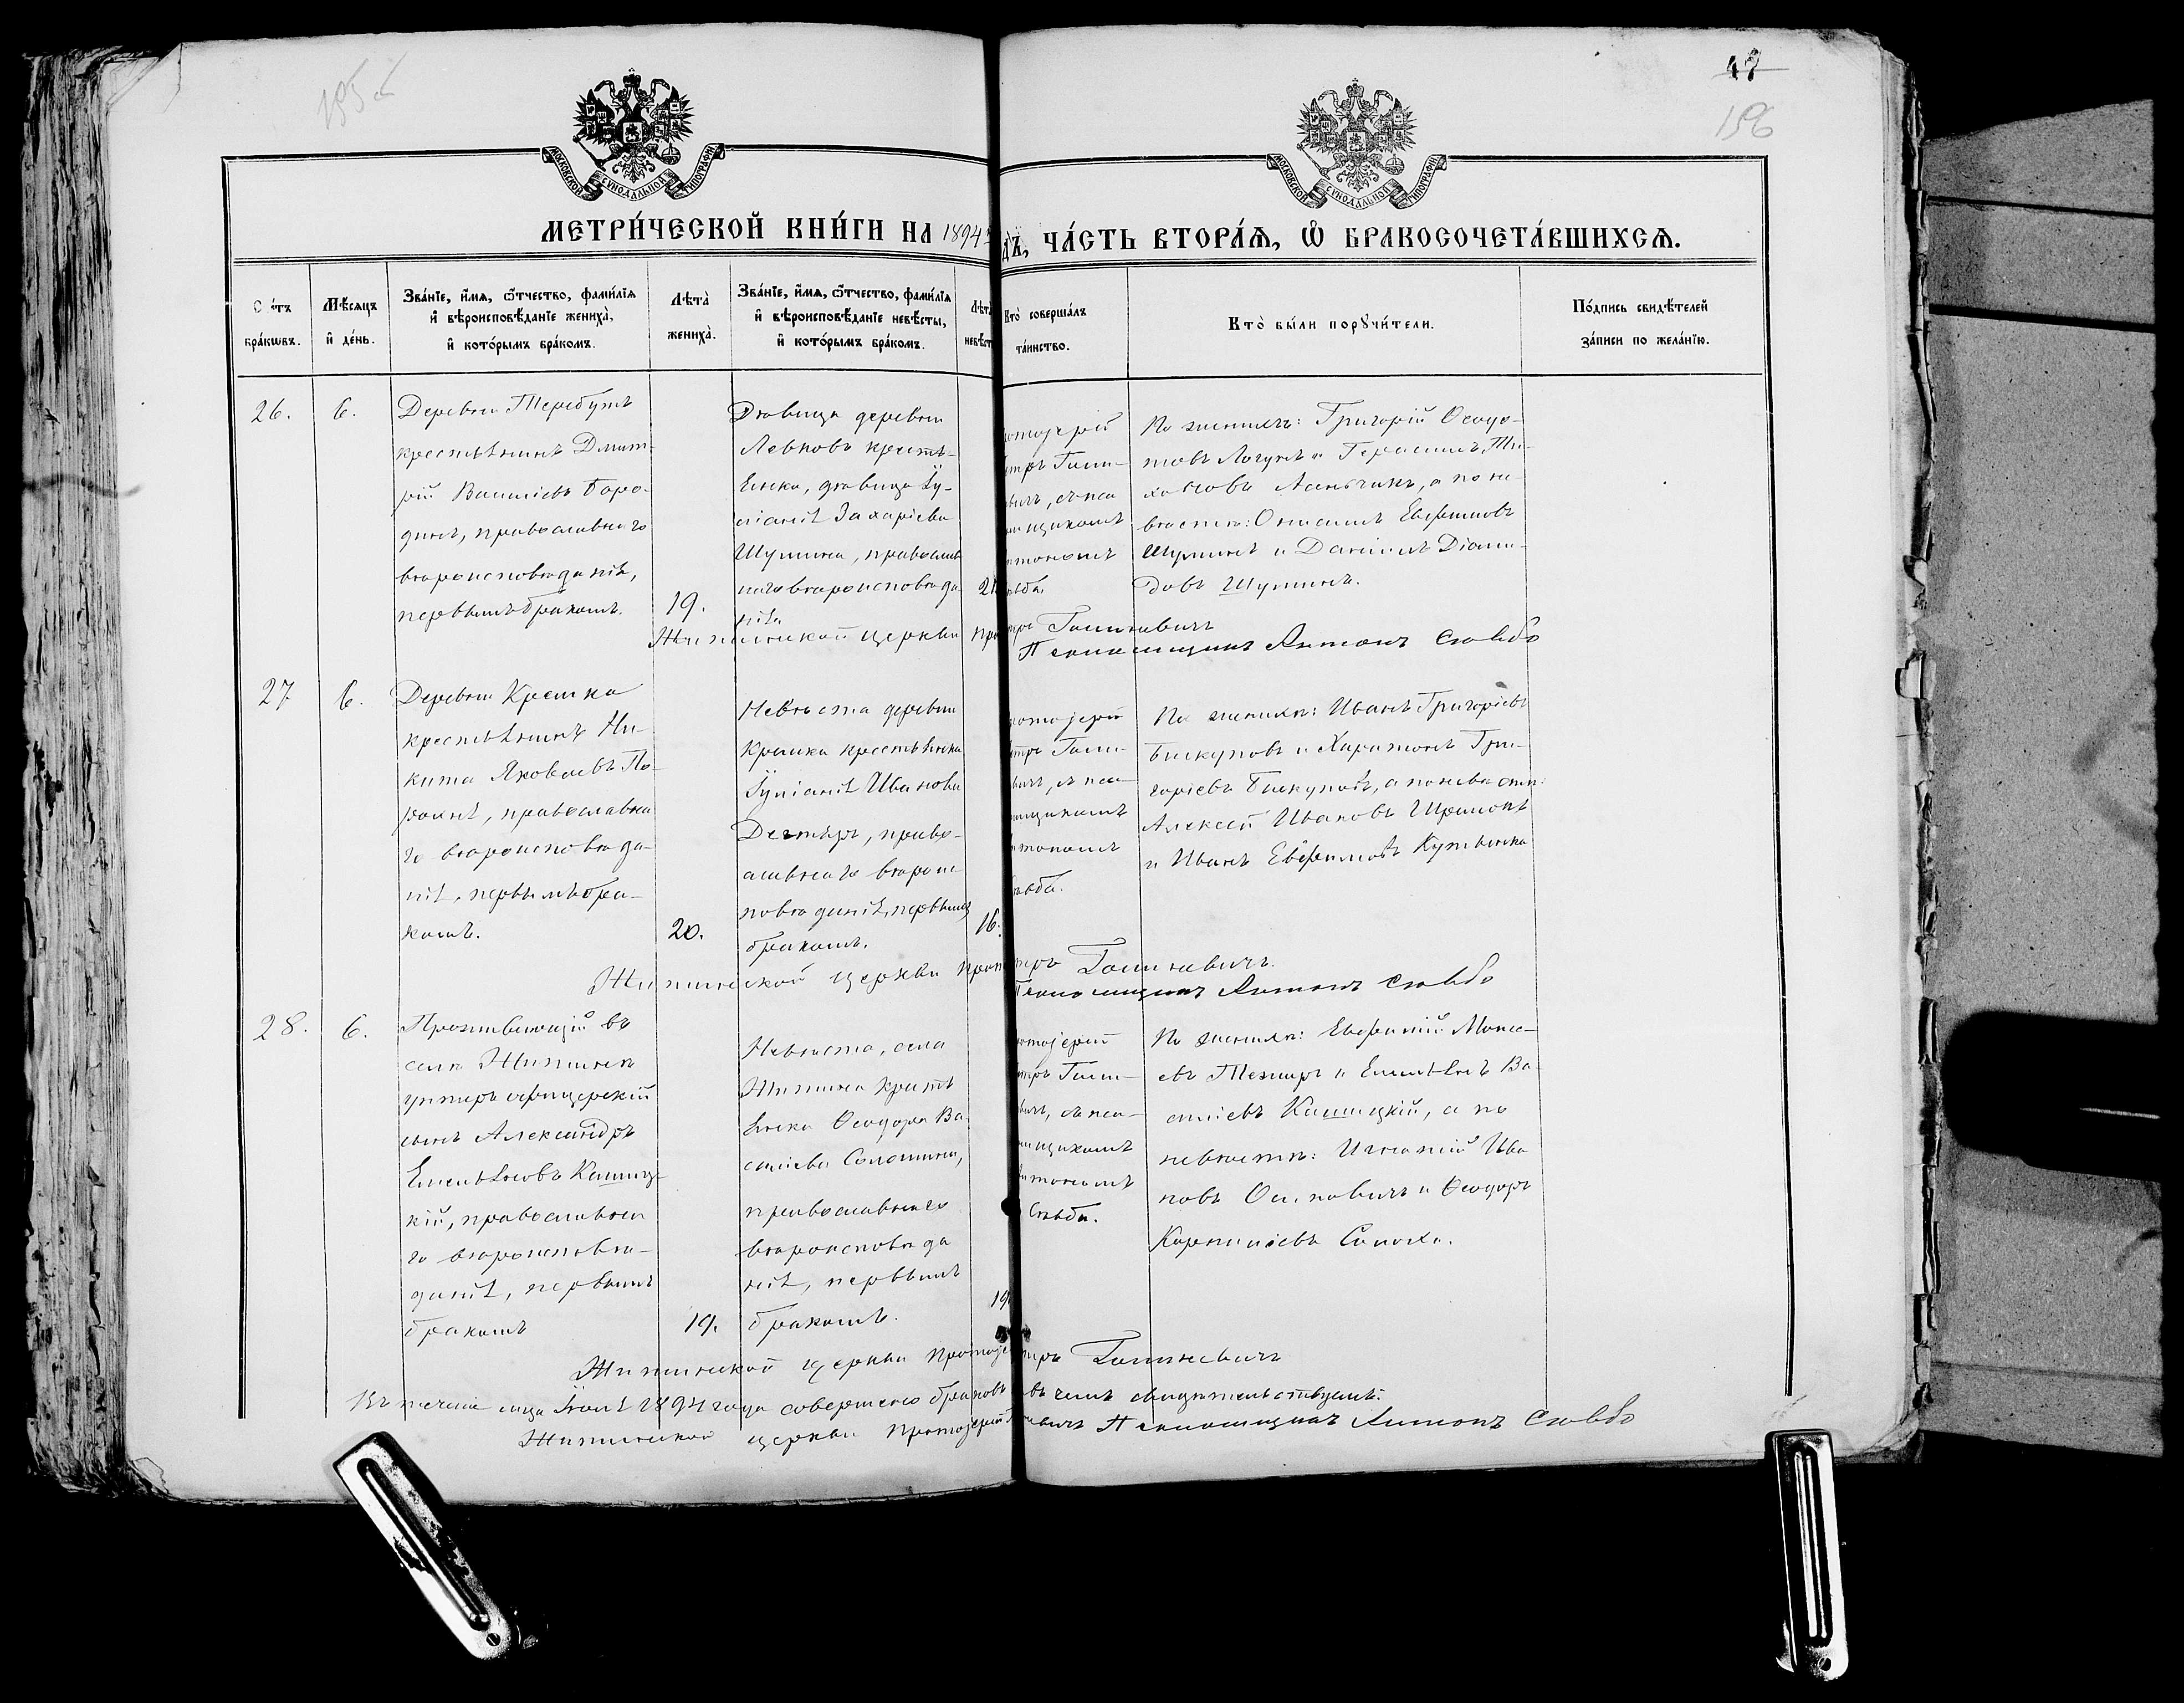 47
156
МОСКОВСКОЙ СУНОДАЛЬНОЙ ТИПОГРАФІИ
МОСКОВСКОЙ СУНОДАЛЬНОЙ ТИПОГРАФІИ
МЕТРИ́ЧЕСКОЙ КНИ́ГИ НА 1894 ДЪ, ЧА́СТЬ ВТОРА́Я, Ѡ҆ БРАКОСОЧЕТА́ВШИХСЯ.
С е́тъ бра́кѡвъ.
Мѣ́сяцъ и҆ де́нь.
Зва́нїе, и҆́мя, ѻ҆́тчество, фами́лїя
и҆ вѣроисповѣ́данїе жениха̀,
и҆ кото́рымъ бра́комъ.
Лѣта̀ жениха̀.
Зва́нїе, и҆́мя, ѻ҆́тчество, фами́лїя
и҆ вѣроисповѣ́данїе невѣ́сты,
и҆ кото́рымъ бра́комъ.
Лѣта̀ невѣст
Кто̀ соверша́лъ
та́инство.
Кто̀ бы́ли порꙋчи́тели.
По́дпись свидѣ́телей
за́писи по жела́нїю.
26.
6.
Деревни Теребутъ
крестьянинъ Дмит-
рій Василіевъ Боро-
динъ, православнаго
вѣроисповѣданія,
первымъ бракомъ.
19.
Дѣвица деревни
Левковъ кресть-
янка, дѣвица Іу-
ліанія Захаріева
Шумина, православ
наго вѣроисповѣда
нія
21
отоіерей
етръ Гом-
вичъ, съ пса
мщикомъ
нтономъ
ьба.
По женихѣ: Григорій Ѳеодо-
товъ Логунъ и Герасимъ Ти-
, а по не-
вѣстѣ: Онисимъ Евфимовъ
Шуминъ и Даніилъ Діоми-
довъ Шуминъ.
Житинской церкви Про тръ
Псаломщикъ Антонъ Сѣвбо
27
6.
Деревни Крешка
крестьянинъ Ни-
кита Яковлевъ По-
, православна
го вѣроисповѣда-
нія, первымъ бра-
комъ.
20.
Невѣста деревни
Крешка крестьянка
Іуліанія Иванова
Дегтяръ, право-
славнаго вѣроис
повѣданія, первымъ
бракомъ.
16.
отоіерей
етръ Гом-
вичъ, съ пса-
мщикомъ
нтономъ
ѣвба.
По женихѣ: Иванъ Григоріевъ
Бискуповъ и Харитонъ Гри-
горіевъ Бискуповъ, а по невѣстѣ:
Алексей Ивановъ
и Иванъ Евфимовъ
Житинской церкви Прот тръ
Псаломщикъ Антонъ Сѣвбо
28.
6.
Проживающій въ
селѣ Житинѣ
унтеръ офицерскій
сынъ Александръ
Емельяновъ Кашиц-
кій, православна
го вѣроисповѣ-
данія, первымъ
бракомъ
19.
Невѣста, села
Житина кресть
янка Ѳеодора Ва
силіева Соломина,
православнаго
вѣроисповѣда
нія, первымъ
бракомъ.
19
отоіерей
етръ Гом-
вичъ, съ пса-
мщикомъ
нтономъ
Сѣвба.
По женихѣ: Евфимій Моисе-
евъ и Емельянъ Ва-
силіевъ Кашицкій, а по
невѣстѣ: Игнатій Ива
новъ и Ѳеодоръ
Карниліевъ
Житинской церкви Протоіе тръ
Въ теченіе мца Іюля 1894 года совершено браковъ въ чемъ свидѣтельствуемъ:
Житинской церкви Протоіерей вичъ Псаломщикъ Антонъ Сѣвбо